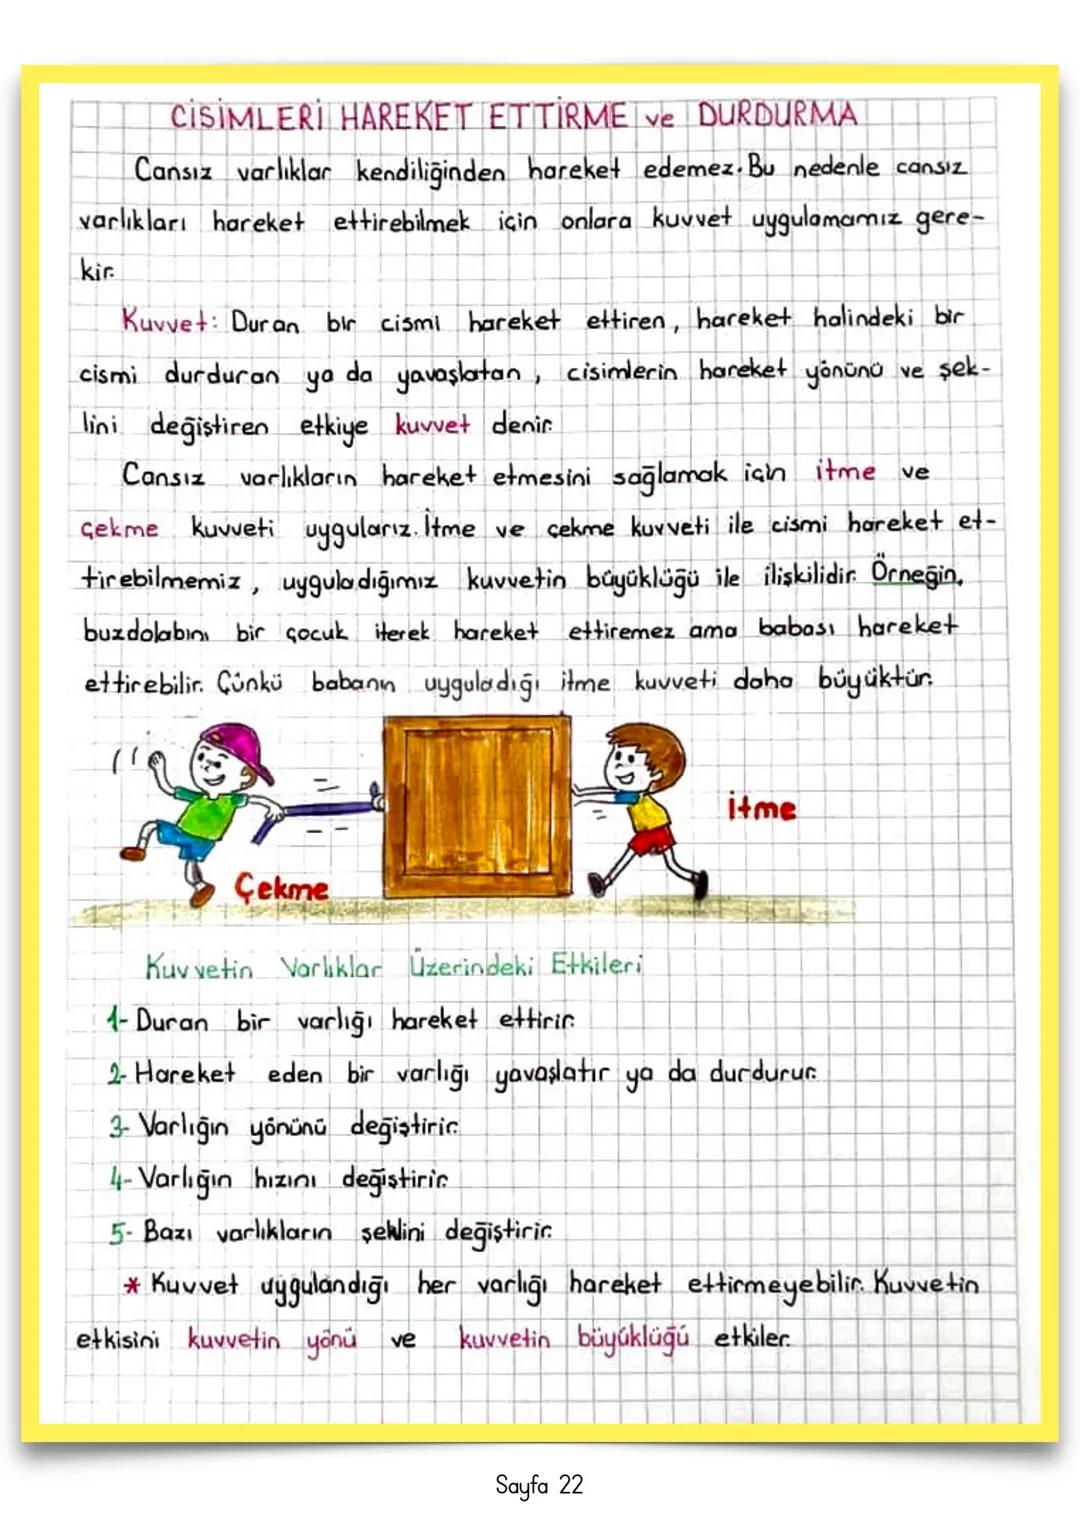 CİSİMLERİ HAREKET ETTİRME ve DURDURMA
Cansız varlıklar kendiliğinden hareket edemez. Bu nedenle cansız
varlıkları hareket ettirebilmek için onlara kuvvet uygulamamız gere-
kir.
Kuvvet: Duran bir cismi hareket ettiren, hareket halindeki bir
cismi durduran ya da yavaşlatan, cisimlerin hareket yönünü ve şek-
lini değiştiren etkiye kuvvet denir.
Cansız varlıkların hareket etmesini sağlamak için itme ve
çekme kuvveti uygularız. İtme ve çekme kuvveti ile cismi hareket et-
tirebilmemiz, uyguladığımız kuvvetin büyüklüğü ile ilişkilidir. Örneğin,
buzdolabını bir çocuk iterek hareket ettiremez ama babası hareket
ettirebilir. Çünkü babanın uyguladığı itme kuvveti daha büyüktür.
İtme
Çekme
Kuvvetin Varlıklar Üzerindeki Etkileri
1- Duran bir varlığı hareket ettirir.
2- Hareket eden bir varlığı yavaşlatır ya da durdurur.
3- Varlığın yönünü değiştirir.
4- Varlığın hızını değiştirir.
5- Bazı varlıkların şeklini değiştirir.
* Kuvvet uygulandığı her varlığı hareket ettirmeyebilir. Kuvvetin
etkisini kuvvetin yönü ve kuvvetin büyüklüğü etkiler.
Sayfa 22